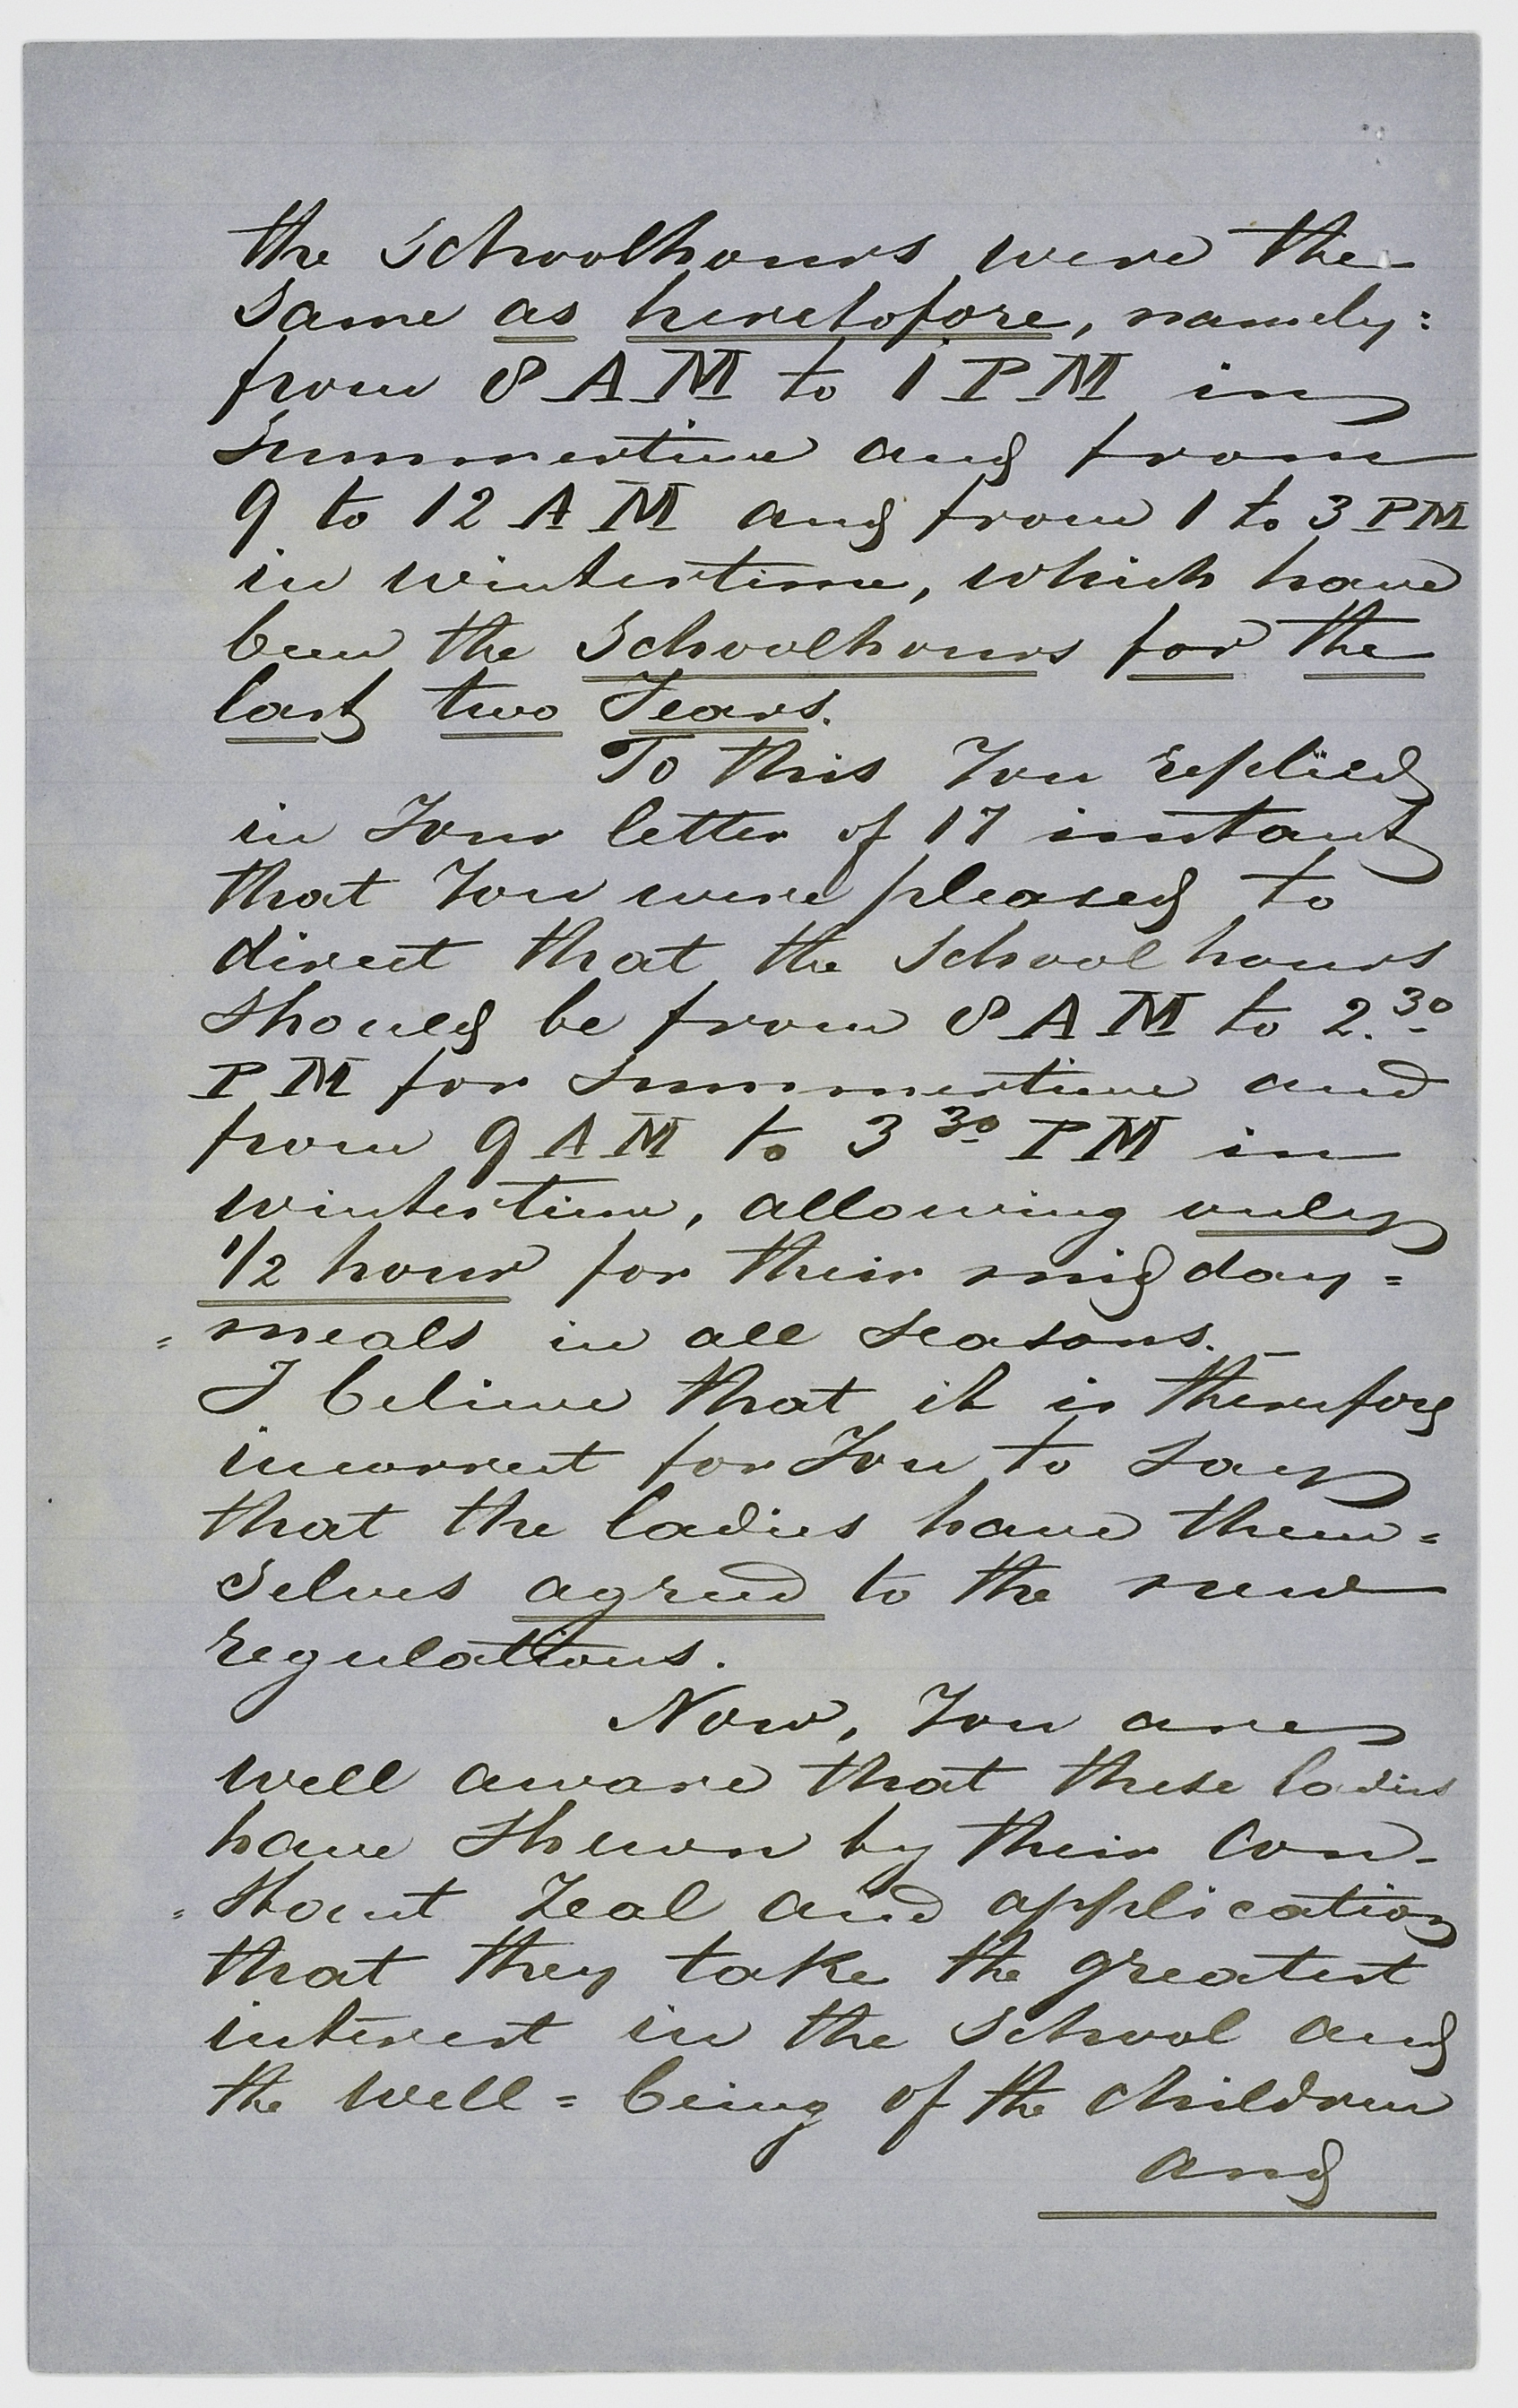 the Schoolhours were the
same as heretofore, namely:
from 8 A M to 1 P M in
Summertime and from
9 to 12 A M and from 1 to 3 PM
in wintertime, which have
been the Schoolhours for the
last two Years.
To this You replied
in Your letter of 17 instant
that You were pleased to
direct that the School hours
should be from 8 A M to 2.30
P M for Summertime and
from 9 A M to 3 30 P M in
wintertime, allowing only
1/2 hour for their midday=
=meals in all seasons._
I believe that it is therefore
incorrect for You to say
that the ladies have them=
selves agreed to the new
regulations.
Now, You are
well aware that these ladies
have shewn by their con-
=stant zeal and application
that they take the greatest
interest in the School and
the well=being of the children
and